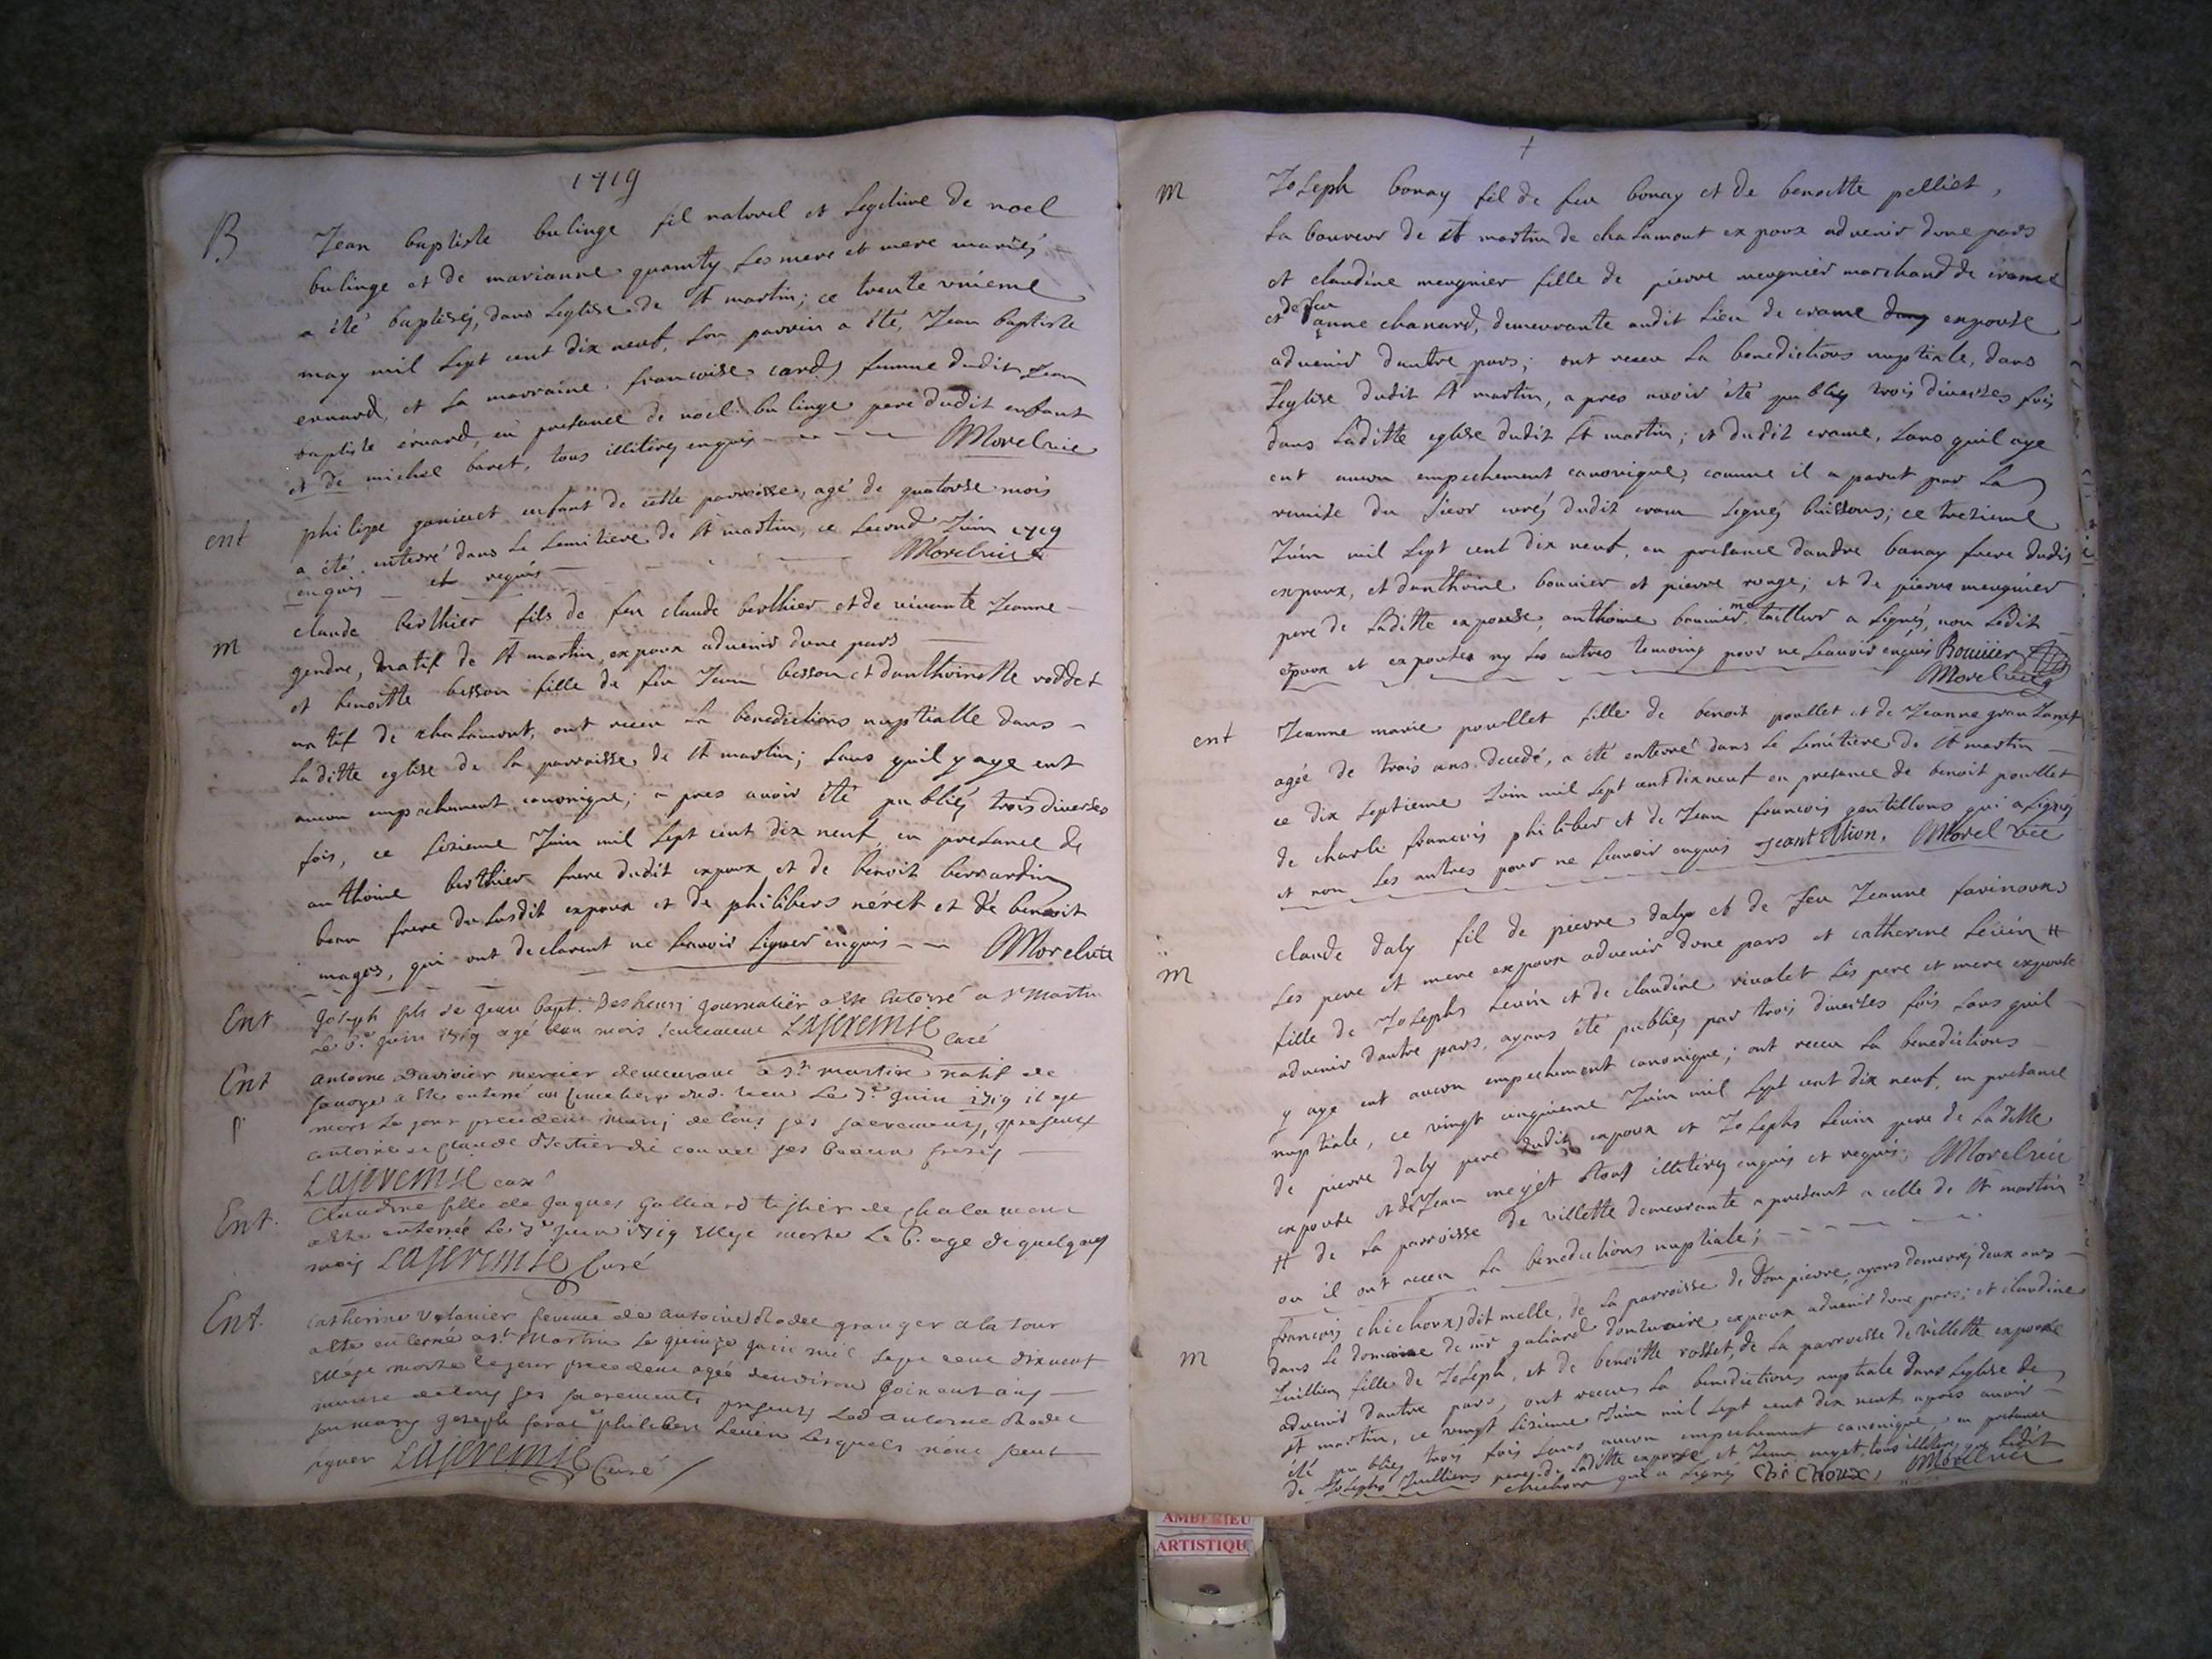 1719
B
Jean baptiste bulinge fil naturel et Legitime de noel
bulinge et de marianne quamty Les mere et mere mariés
a été baptisé, dans Leglise de st martin; ce trente vnieme
may mil Sept cent dix neuf, Son parrin a été, Jean baptiste
ernard, et La marraine francoise card femme dudit Jean
baptiste érnard, en presance de noel bulinge pere dudit enfant
et de michel baret, tous illitérés enquis Morel vic
ent
philipe enfant de cette parroisse, agé de quatorse mois
a été enterré dans Le Semitiere de st martin, ce Second Juin 1719
enquis et requis Morel vic
m
claude berthier fils de feu claude berthier et de vivante Jeanne
gendre, natif de st martin, expoux advenir dune pars
et benoitte besson fille de feu Jean besson et danthoinette roddet
natif de chalamont, ont receu La benedictions nuptialle dans
Laditte eglise de La parroisse de st martin; Sans quil y aye eut
aucun empechement canonique; a pres avoir été publiés trois diverses
fois, ce Sixieme Juin mil Sept cent dix neuf, en presance de
anthoine berthier frere dudit expoux et de benoit bernardin
beau frere du Susdit expoux et de philibers néret et de benoit
magos, qui ont declarent ne Scavoir Signer enquis Morel vic
Ent
Joseph fils de Jean bapt. Deshenri Journaliër a esté Enterré a St Martin
Le 6e Juin 1719 agé dun mois Seulement Lajeremie Curé
Ent
antoine Duvivier mercier demeurant a St martin natif de
Savoye a este enterré au cimetiere dud. lieu Le 7e Juin 1719 il est
mort Le jour precedent muni de tous ses sacremens, presens
antoine et claude ses beaux freres
Lajeremie curé
Ent.
Claudine fille de Jaques Galliard tissier de chalamont
a este enterrée Le 7e Juin 1719 Elle est morte Le 6. age de quelques
mois Lajeremie Curé
Ent.
Catherine volanier femme de antoine Rodet granger a la tour
a esté enterrée a St Martin Le quinze Juin mil Sept cent dixneuf
Elle est morte le jour precedent agée denviron Soixant ans
munie de tous ses sacrements presents Led antoine Rodet
son mary Joseph et philibert Levin Lesquels nont sceut
signer Lajeremie Curé
m
Joseph bonay fil de feu bonay et de benoitte pelliet,
Laboureur de st martin de chalamont expoux advenir dune pars
et claudine meugnier fille de pierre meugnier marchand de crame
et de feu anne chanard, demeurante audit Lieu de crame expouse
advenir dautre pars; ont receu La benedictions nuptiale, dans
Leglise dudit st martin, a pres avoir été publiés trois diverses fois
dans Laditte eglise dudit st martin; et dudit crame, Sans quil aye
eut aucun empechement canonique, comme il a parut par La
remise du Sieur curé dudit cram Signé buissons; ce tresieme
Juin mil Sept cent dix neuf, en presance dandre bonay frere dudit
expoux, et danthoine bouvier et pierre rouge; et de pierre meugnier
pere de Laditte expouse, anthoine bouvier me tailleur a Signé, non Ledit
époux et expouse ny Les autres temoins pour ne Scavoir enquis Bouvier
Morel vic
ent
Jeanne marie poullet fille de benoit poullet et de Jeanne
agée de trais ans decedé, a été enterré dans Le Semitiere de st martin
ce dix Septieme Juin mil Sept cent dix neuf en presance de benoit poullet
de charle francois philiber et de Jean francois gentillons qui a Signé
et non Les autres pour ne Scavoir enquis Jeantillion, Morel vic
m
claude daly fil de pierre daly et de feu Jeanne favinoux
Les pere et mere expoux advenir dune pars et catherine Levin #
fille de Josephs Levin et de claudine rivolet Les pere et mere expouse
advenir dautre pars, ayans été publiés par trois diverses fois Sans quil
y aye eut aucun empechement canonique; ont receu La benedictions
nuptiale, ce vingt cinquieme Juin mil Sept cent dix neuf, en presance
de pierre daly pere dudit expoux et Josephs Levin pere de Laditte
expouse et de Jean meyet tous illitérés enquis et requis, Morel vic
# de La parroisse de villette demeurante apresant a celle de st martin
ou il ont receu La benedictions nuptiale;
m
francois chichoux dit melle, de La parroisse de dompierre, ayans demeuré deux ans
dans Le domaine de mr galiard expoux advenir dune pars; et claudine
Juillien fille de Joseph, et de benoitte rosset, de La parroisse de villette expouse
advenir dautre pars, ont receu La benedictions nuptiale dans Leglise de
st martin, ce vingt Sixieme Juin mil Sept cent dix neuf, apres avoir
été publiés trois fois Sans aucun empechement canonique en presance
de Josephs Juilliens pere de Laditte expouse et Jean meyet, tous illiteres Ledit
chichoux qui a Signé Chi Choux, Morel vic
AMBERIEU
ARTISTIQU